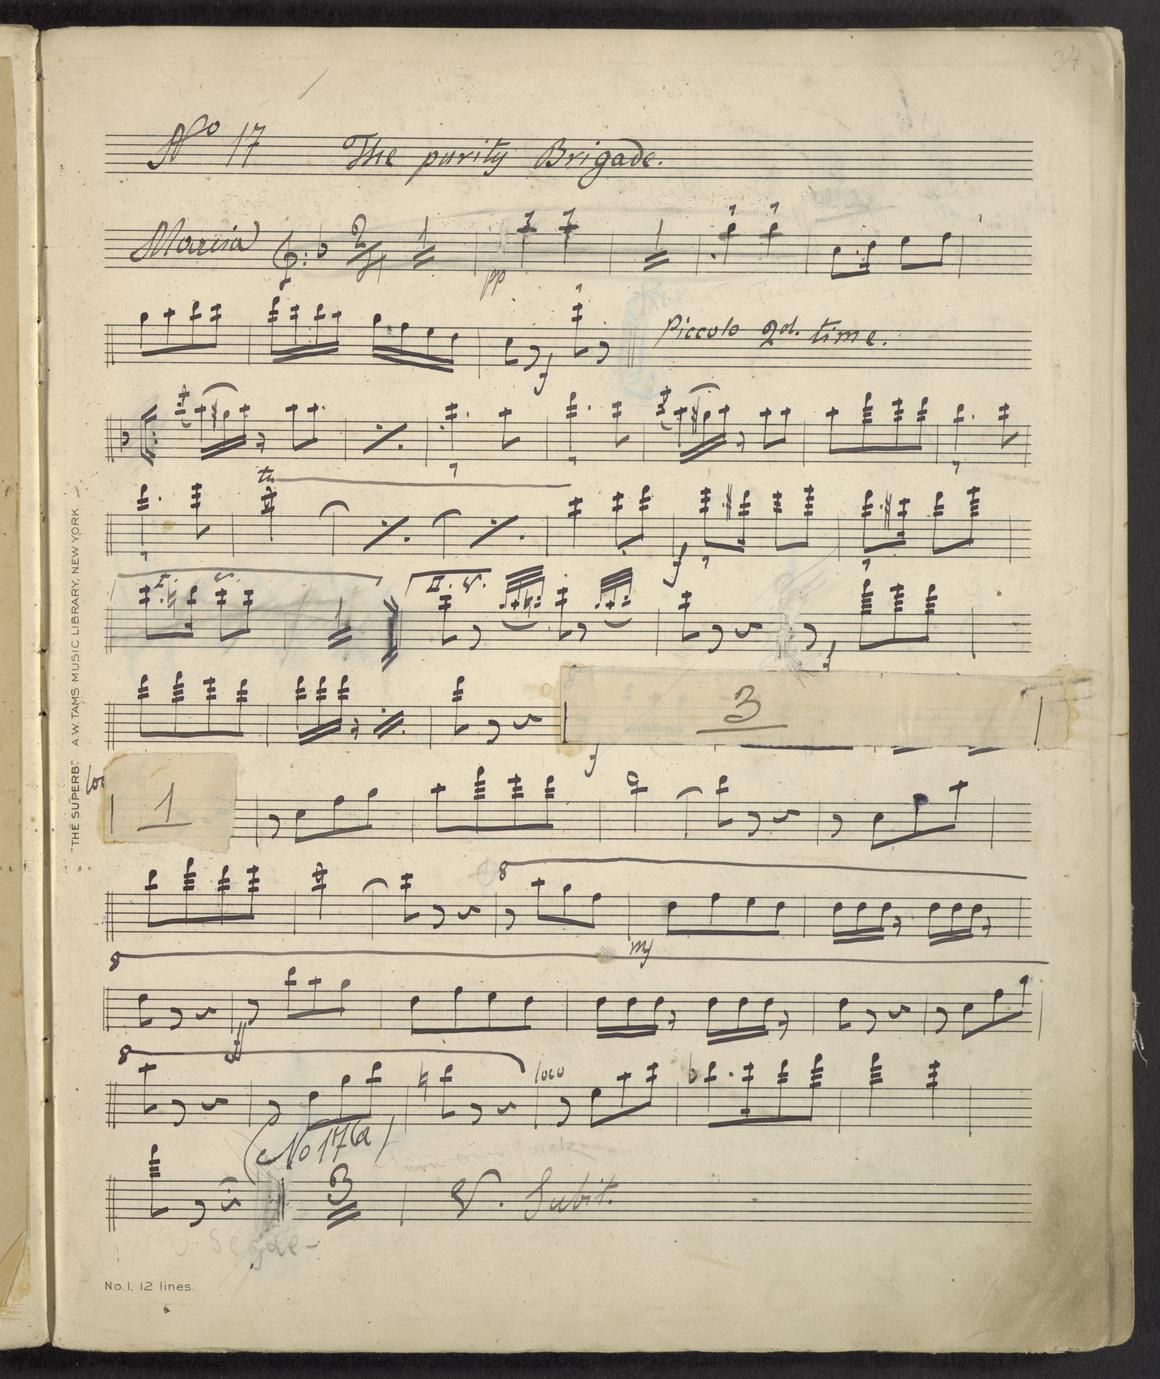 37
No 17 The purity Brigade.
Marcia 2/4 1 pp 1
f Piccolo 2d. time.
tr
f
I. II.
f
3
f
1
8
mf
8
ff
8 loco
(No 17(a)
3 V. Subit.
Segue-
"THE SUPERB." A.W. TAMS MUSIC LIBRARY, NEW YORK.
No. 1, 12 lines.